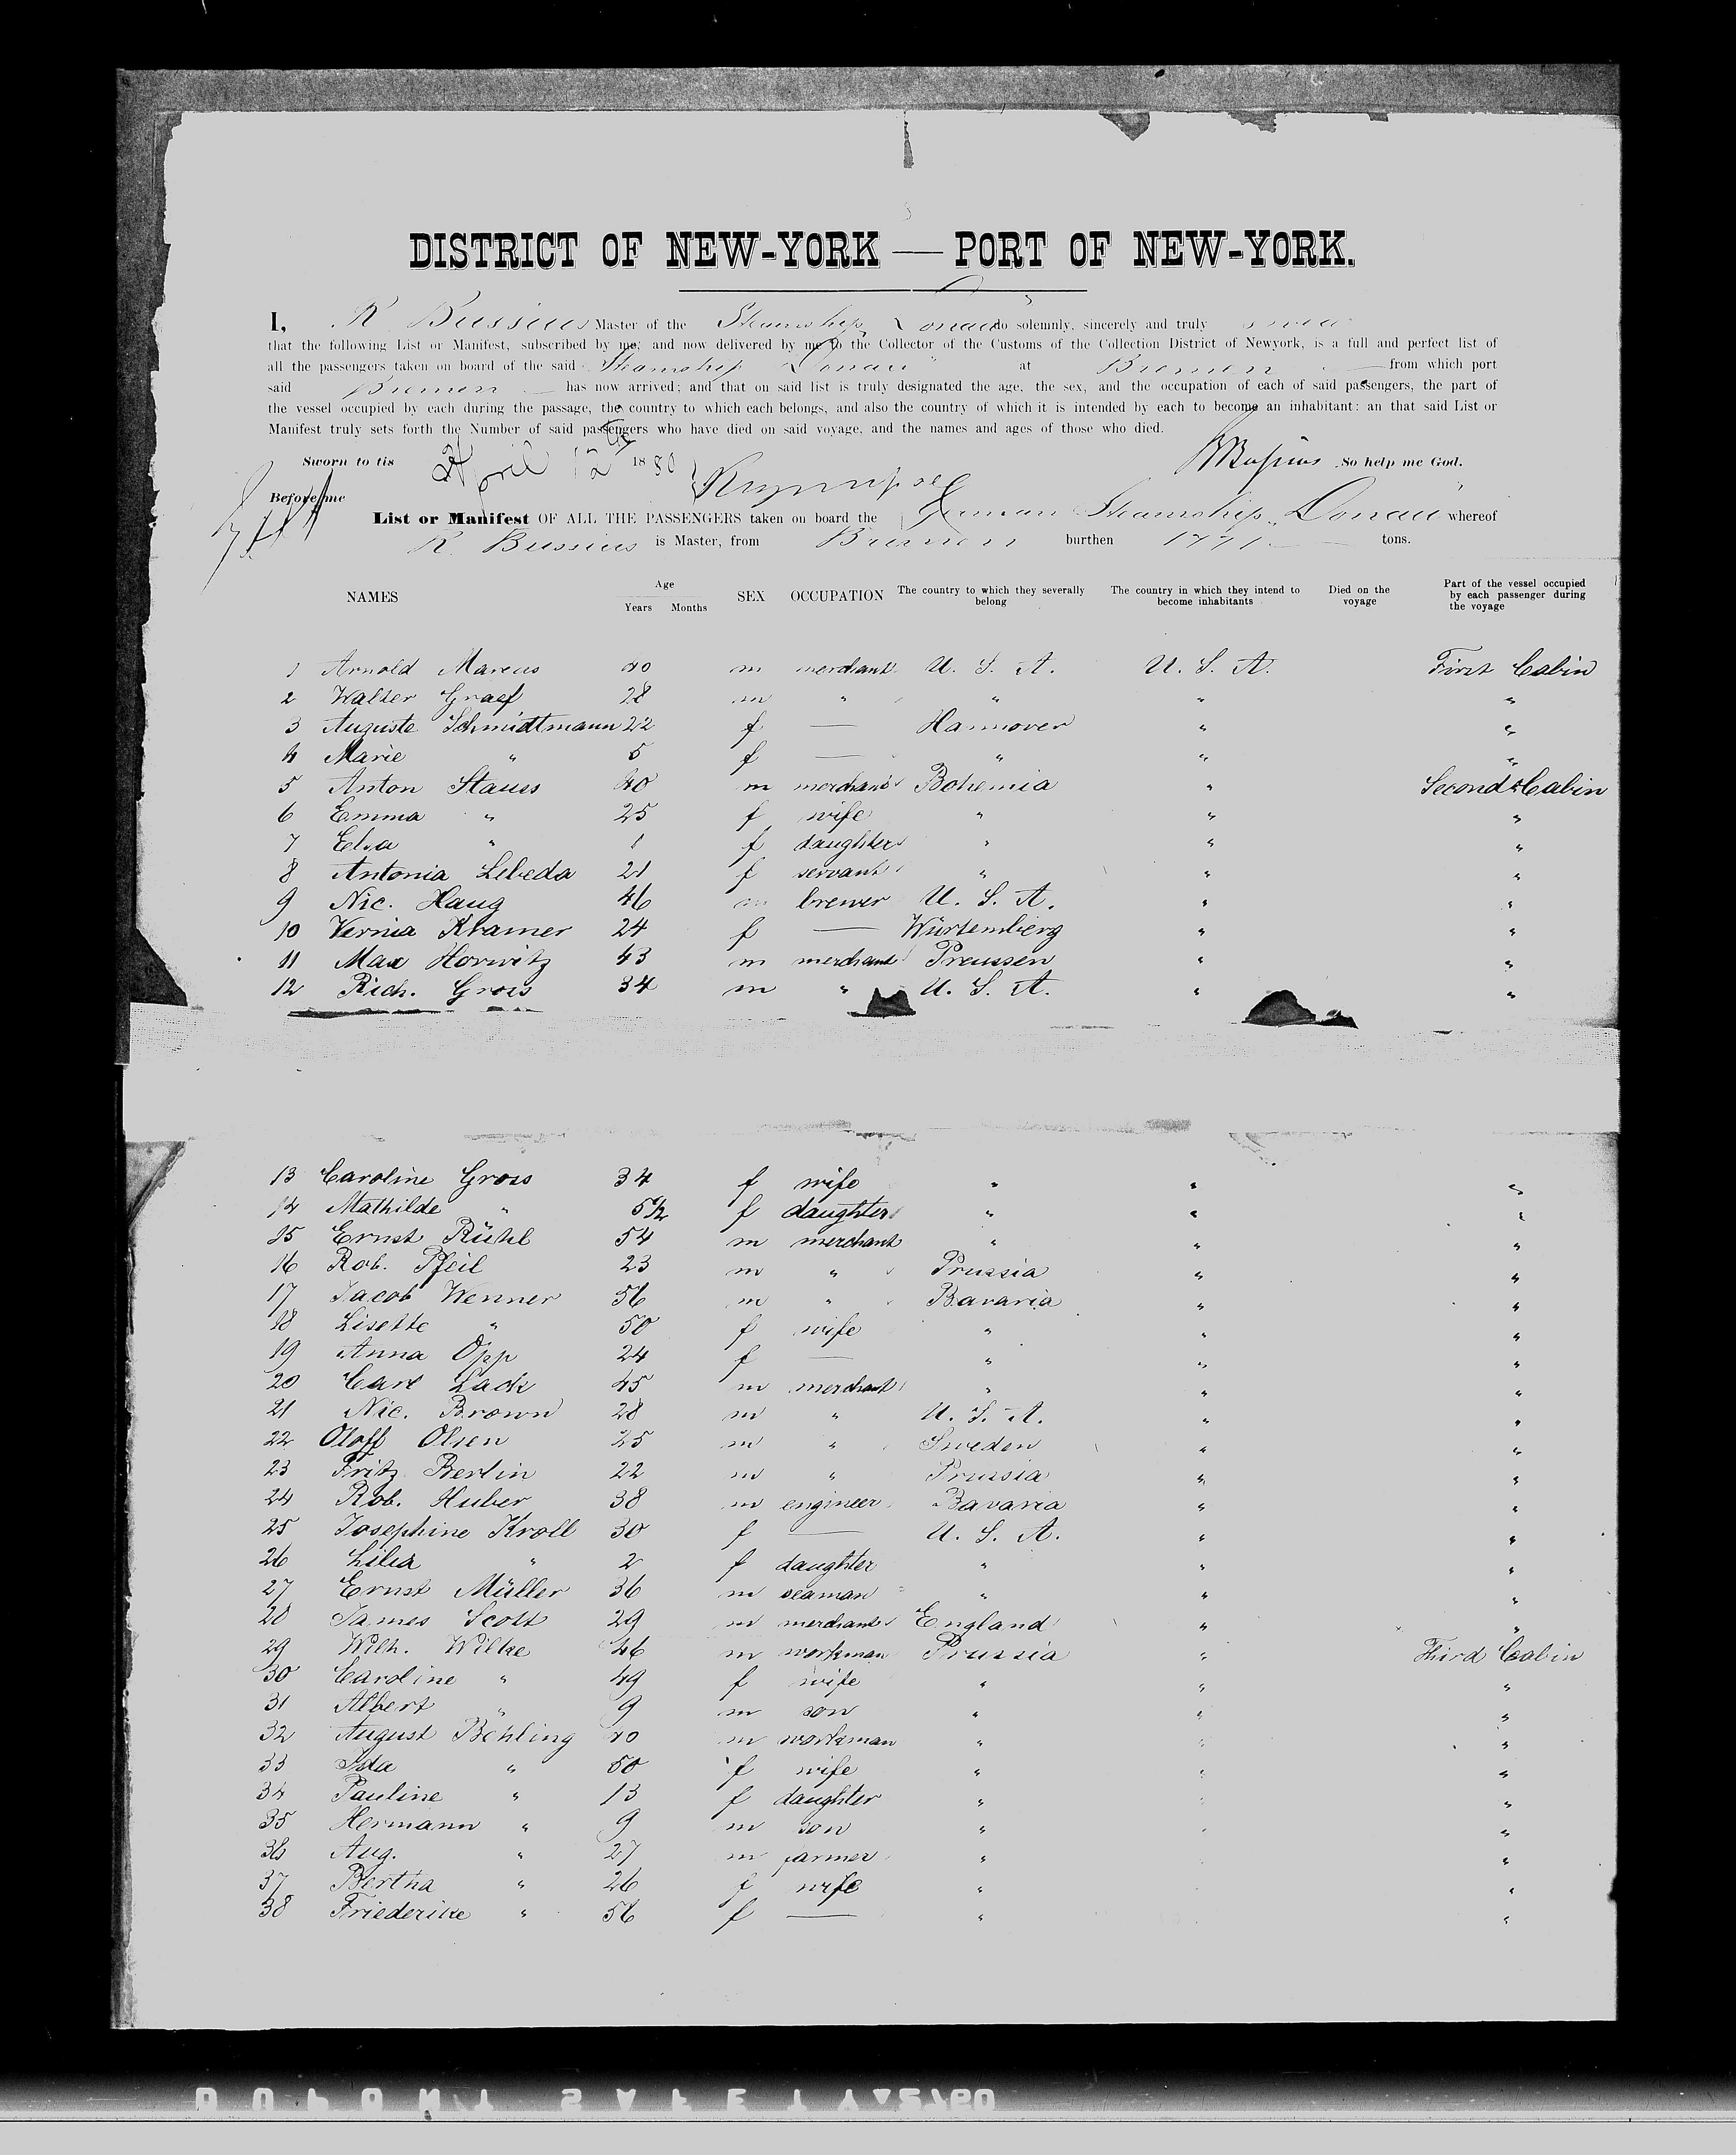 DISTRICT OF NEW-YORK — PORT OF NEW-YORK.
I, R Bussius Master of the Steamship Donau do solemnly, sincerely and truly swear
that the following List or Manifest, subscribed by me, and now delivered by me to the Collector of the Customs of the Collection District of Newyork, is a full and perfect list of
all the passengers taken on board of the said Steamship Donau at Bremen from which port
said Bremen has now arrived; and that on said list is truly designated the age, the sex, and the occupation of each of said passengers, the part of
the vessel occupied by each during the passage, the country to which each belongs, and also the country of which it is intended by each to become an inhabitant: an that said List or
Manifest truly sets forth the Number of said passengers who have died on said voyage, and the names and ages of those who died.
Sworn to tis April 12th 1880 RBussius So help me God.
Before me
List or Manifest OF ALL THE PASSENGERS taken on board the German Steamship "Donau" whereof
R. Bussius is Master, from Bremen burthen tons.
NAMES Age Years Months SEX OCCUPATION The country to which they severally belong The country in which they intend to become inhabitants Died on the voyage Part of the vessel occupied by each passenger during the voyage
1 Arnold Marcus 40 m merchant U. S. A. U. S. A. First Cabin
2 Walter Graef 28 m " " " "
3 Auguste Schmidtmann 22 f — Hannover " "
4 Marie " 5 f — " " "
5 Anton Stauss 40 m merchant Bohemia " Second Cabin
6 Emma " 25 f wife " " "
7 Elsa " 1 f daughter " " "
8 Antonia Lebeda 21 f servant " " "
9 Nic. Haug 46 m brewer U. S. A. " "
10 Vernia Kramer 24 f — Würtemberg " "
11 Max Horwitz 43 m merchant Preussen " "
12 Rich. Gross 34 m " U. S. A. " "
13 Caroline Gross 34 f wife " " "
14 Mathilde " 5 1/2 f daughter " " "
15 Ernst Rühl 54 m merchant " " "
16 Rob. Pfeil 23 m " Prussia " "
17 Jacob Wenner 56 m " Bavaria " "
18 Lisette " 50 f wife " " "
19 Anna Opp 24 f — " " "
20 Carl Lack 45 m merchant " " "
21 Nic. Brown 28 m " U. S. A. " "
22 Oloff Olsen 25 m " Sweden " "
23 Fritz Berlin 22 m " Prussia " "
24 Rob. Huber 38 m engineer Bavaria " "
25 Josephine Kroll 30 f — U. S. A. " "
26 Lilia " 2 f daughter " " "
27 Ernst Müller 36 m seaman " " "
28 James Scott 29 m merchant England " "
29 Wilh. Wilke 46 m workman Prussia " Third Cabin
30 Caroline " 49 f wife " " "
31 Albert " 9 m son " " "
32 August Behling 40 m workman " " "
33 Ida " 50 f wife " " "
34 Pauline " 13 f daughter " " "
35 Hermann " 9 m son " " "
36 Aug. " 27 m farmer " "
37 Bertha " 26 f wife " "
38 Friederike " 56 f — " "